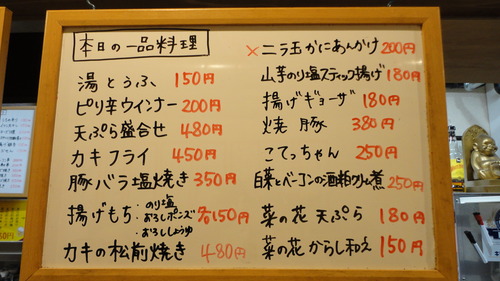 本日の一品料理
湯とうふ 150円
ピリ辛ウインナー 200円
天ぷら盛合せ 480円
カキフライ 450円
豚バラ塩焼き 350円
揚げもち ・のり塩 ・おろしポンズ ・おろししょうゆ 各150円
カキの松前焼き 480円
×ニラ玉かにあんかけ 200円
山芋のり塩スティック揚げ 180円
揚げギョーザ 180円
焼豚 380円
こてっちゃん 250円
白菜とベーコンの酒粕クリーム煮 250円
菜の花 天ぷら 180円
菜の花 からし和え 150円